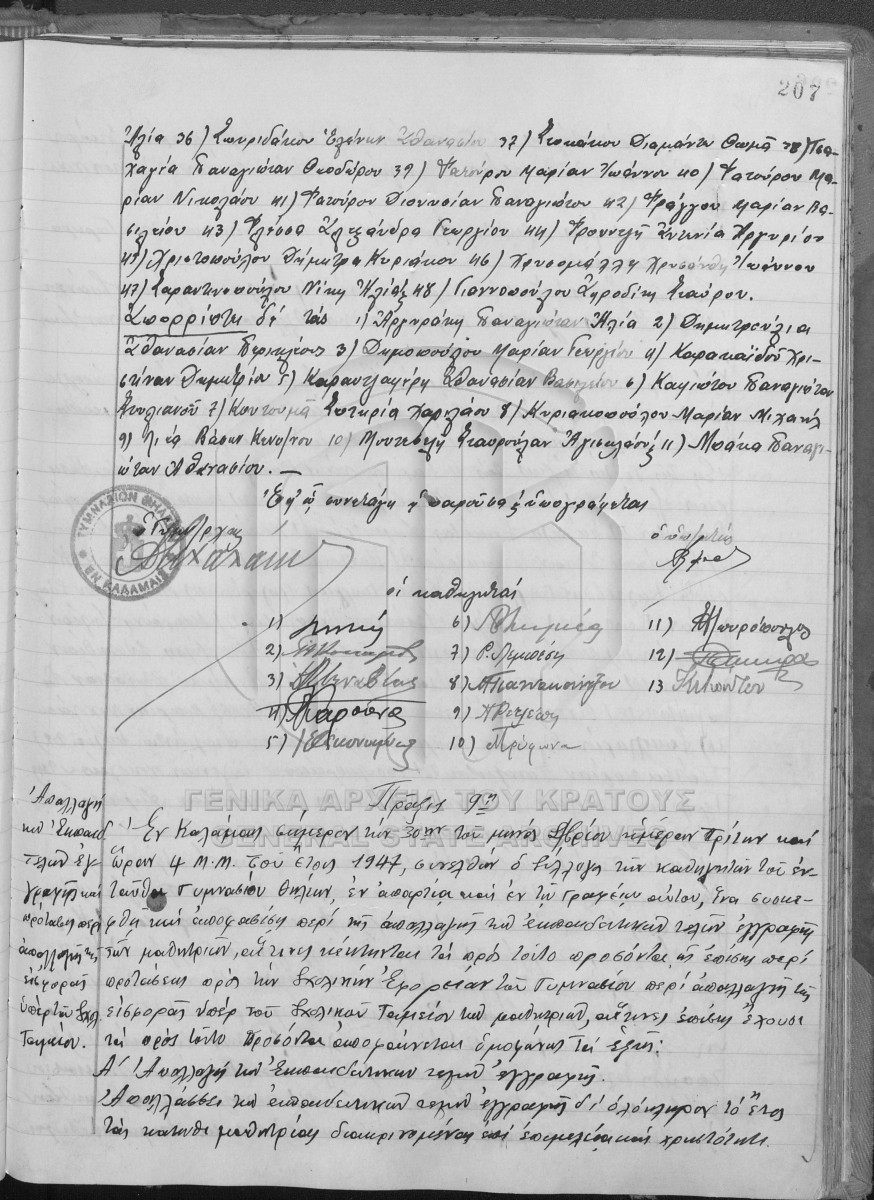 207
Ἠλία 36) Σπυριδάκου Ἑλένην Ἀθανασίου 37) Στοκάκου Διαμάντω Θωμᾶ 38) Τσα-
χαγία Παναγιώταν Θεοδώρου 39) Φατούρου Μαρίαν Ἰωάννου 40) Φατούρου Μα-
ρίαν Νικολάου 41) Φατούρου Διονυσίαν Παναγιώτου 42) Φράγγου Μαρίαν Βα-
σιλείου 43) Φλέσσα Ἀλεξάνδρα Γεωργίου 44) Φρουντζῆ Ἀντωνία Ἀργυρίου
45) Χριστοπούλου Δήμητρα Κυριάκου 46) Χρυσομάλλη Χρυσάνθη Ἰωάννου
47) Σαραντοπούλου Νίκη Ἠλία & 48) Γιαννοπούλου Ἀφροδίτη Σταύρου.
Ἀπορρίπτει δέ τάς 1) Ἀργυράκη Παναγιώταν Ἠλία 2) Δημητρούλια
Ἀθανασίαν Περικλέους 3) Δημοπούλου Μαρίαν Γεωργίου 4) Καρακαΐδου Χρι-
στίναν Δημητρίου 5) Καραντζαφέρη Ἀθανασίαν Βασιλείου 6) Καμιώτου Παναγιώταν
Στυλιανοῦ 7) Κουτουμᾶ Σωτηρία Χαριλάου 8) Κυριακοπούλου Μαρίαν Μιχαήλ
9) Λιέα Βάσω Κων/νου 10) Μουτεβελῆ Σταυρούλαν Ἀγησιλάου & 11) Μπάκα Παναγι-
ώταν Ἀθανασίου. —
Ἐφ' ᾧ συνετάγη ἡ παροῦσα & ὑπογράφεται
ὁ Γυμν/ρχης
ΓΥΜΝΑΣΙΟΝ ΘΗΛΕΩΝ
ΕΝ ΚΑΛΑΜΑΙΣ
οἱ καθηγηταί
1)
2)
3)
4)
5) Οἰκονομ
6)
7) Ρ. Λυμπέρη
8) Παπακωνστ
9)
10) Τρύφωνα
11) Σπυρόπουλος
12)
13
ΓΕΝΙΚΑ ΑΡΧΕΙΑ ΤΟΥ ΚΡΑΤΟΥΣ
GENERAL STATE ARCHIVES
Πρᾶξις 9η
Ἀπαλλαγή
τῶν Ἐκπαιδ.
Τελῶν ἐγ-
γραφῆς καί
πρότασις περί
ἀπαλλαγῆς τῆς
εἰσφορᾶς
ὑπέρ τοῦ Σχολ.
Ταμείου.
Ἐν Καλάμαις σήμερον τήν 30ην τοῦ μηνός 7βρίου ἡμέραν Τρίτην καί
ὥραν 4 Μ.Μ. τοῦ ἔτους 1947, συνελθών ὁ Σύλλογος τῶν καθηγητῶν τοῦ ἐν-
ταῦθα Γυμνασίου Θηλέων, ἐν ἀπαρτίᾳ καί ἐν τῷ Γραφείῳ αὐτοῦ, ἵνα συσκε-
φθῇ καί ἀποφασίσῃ περί τῆς ἀπαλλαγῆς τῶν ἐκπαιδευτικῶν τελῶν ἐγγραφῆς
τῶν μαθητριῶν, αἵτινες κέκτηνται τά πρός τοῦτο προσόντα, ὡς ἐπίσης περί
προτάσεως πρός τήν Σχολικήν Ἐφορείαν τοῦ Γυμνασίου περί ἀπαλλαγῆς τῆς
εἰσφορᾶς ὑπέρ τοῦ Σχολικοῦ Ταμείου τῶν μαθητριῶν, αἵτινες ἐπίσης ἔχουσι
τά πρός τοῦτο προσόντα, ἀποφαίνεται ὁμοφώνως τά ἑξῆς:
Α' Ἀπαλλαγή τῶν Ἐκπαιδευτικῶν τελῶν ἐγγραφῆς.
Ἀπαλλάσσει τῶν ἐκπαιδευτικῶν τελῶν ἐγγραφῆς δι' ὁλόκληρον τό ἔτος
τάς κάτωθι μαθητρίας διακρινομένας ἐπί ἐπιμελείᾳ καί χρηστότητι.